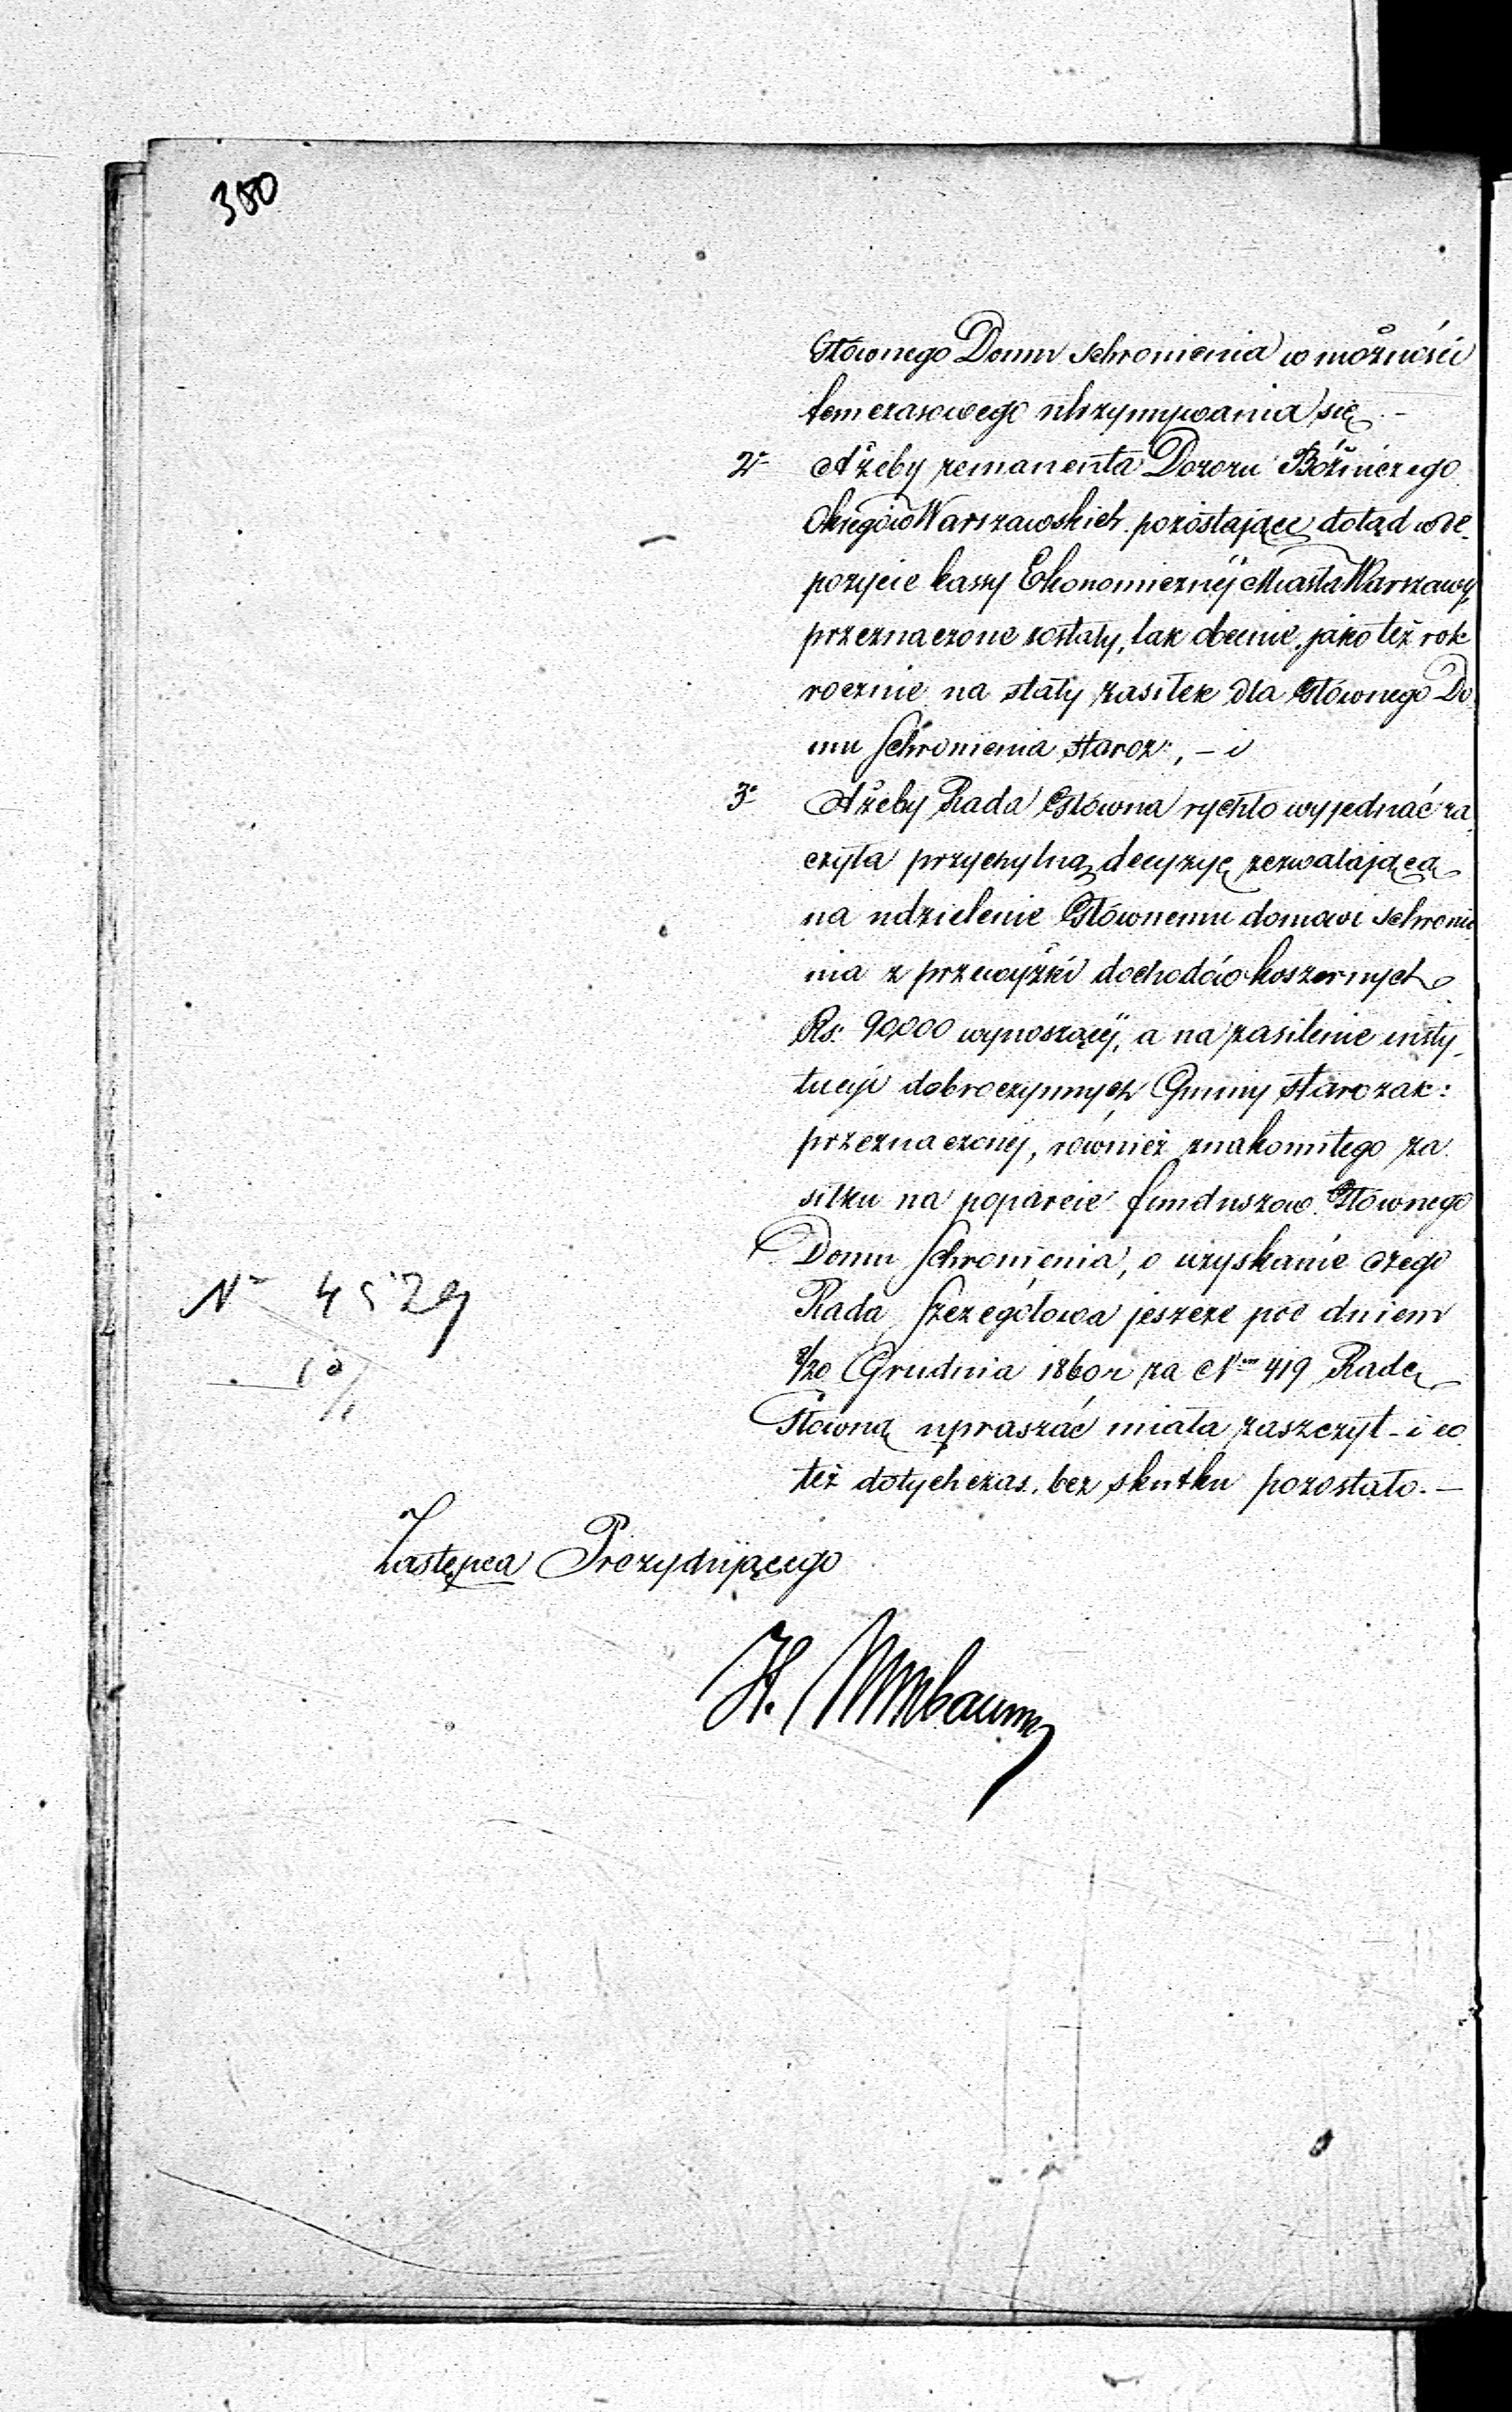 380
Głównego Domu schronienia w możności
temczasowego utrzymywania się. –
2e Ażeby remanenta Dozoru Bóżniczego
Okręgów Warszawskich pozostające dotąd w de-
pozycie kassy Ekonomicznéj Miasta Warszawy,
przeznaczone zostały, tak obecnie, jako też rok
rocznie na stały zasiłek dla Głównego Do
mu Schronienia staroz:, – i
3e Ażeby Rada Główna rychło wyjednać ra
czyła przychylną decyzyę zezwalającą
na udzielenie Głównemu domowi schronie
nia z przewyżki dochodów koszernych
Rs: 90,000 wynoszącéj, a na zasilenie insty-
tucyi dobroczynnych Gminy starozak:
przeznaczonéj, również znakomitego za
siłku na poparcie funduszów Głównego
Domu Schronienia, o uzyskanie czego
Rada Szczegółowa jeszcze pod dniem
8/20 Grudnia 1860 r za Nrem 419 Radę
Główną upraszać miała zaszczyt – i co
też dotychczas bez skutku pozostało. –
No 4529
10/
Zastępca Prezydującego
H. Nussbaum